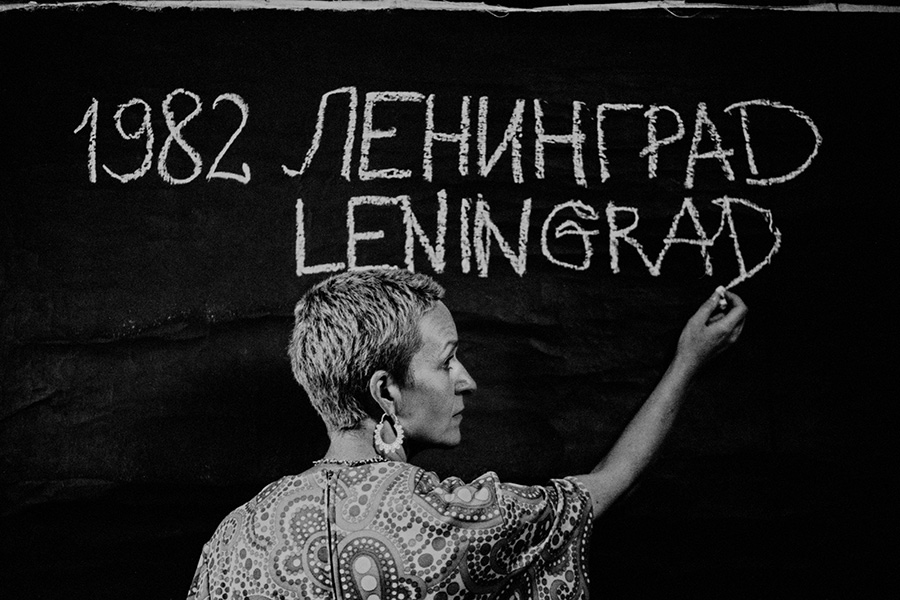 1982 ЛЕНИНГРАД
LENINGRAD